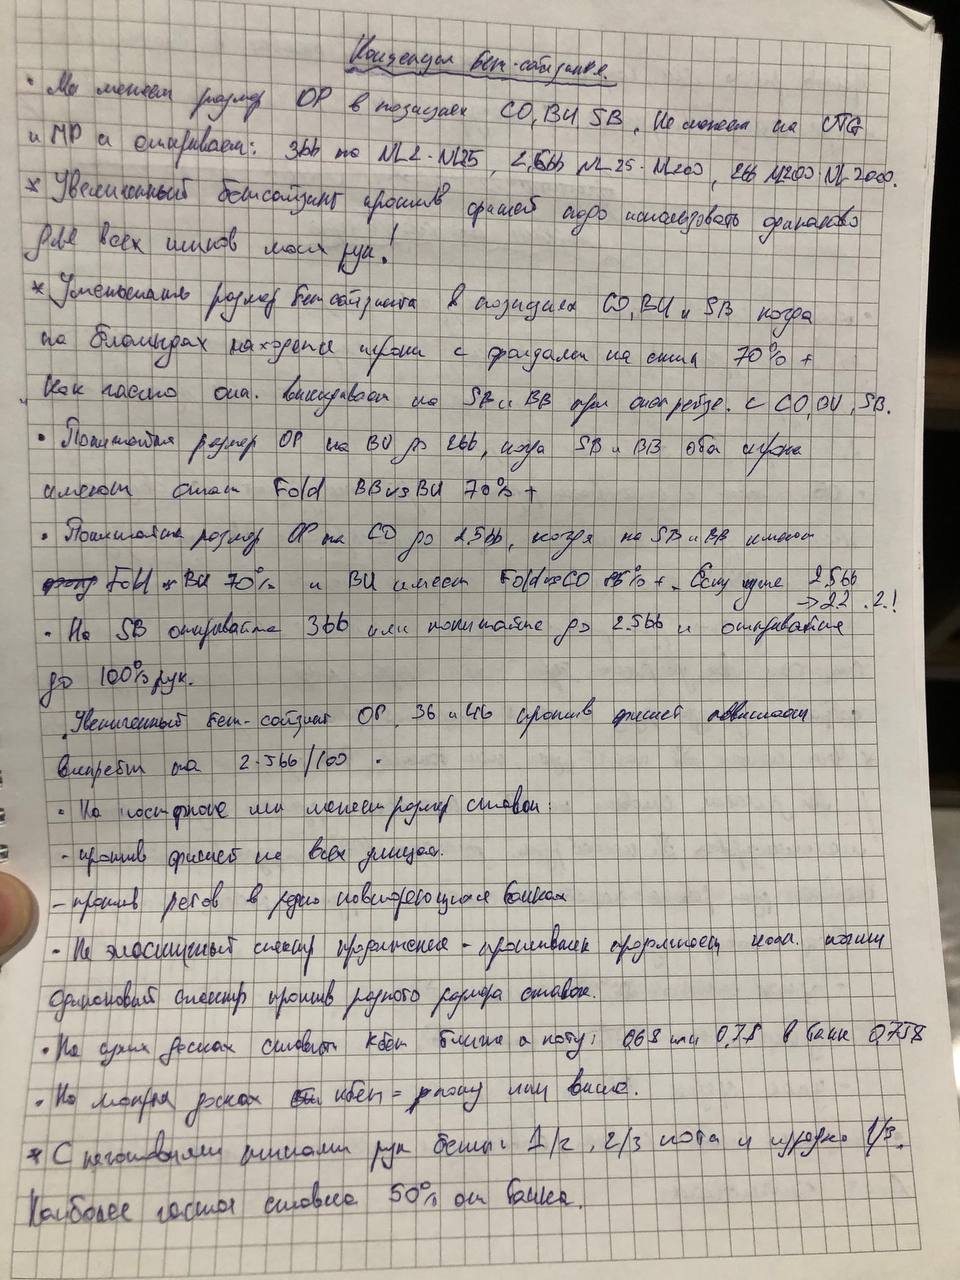 Концепция бет-сайзинга.
• Мы меняем размер ОР в позициях CO, BU, SB. Не меняем на UTG
и MP и открываем: 3bb на NL2-NL25, 2,5bb NL25-NL200, 2bb NL200-NL2000.
* Увеличенный бетсайзинг против фишей надо использовать одинаково
для всех типов моих рук!
* Уменьшать размер бетсайзинга в позициях CO, BU и SB когда
на блайндах находятся игроки с фолдами на стил 70% +
Как часто опп. выкидывает на SB и BB при опенрейзе с CO, BU, SB.
• Понижайте размер ОР на BU до 2bb, когда SB и BB оба игрока
имеют стат Fold BB vs BU 70% +
• Понижайте размер ОР на CO до 2.5bb, когда на SB и BB имеют
Fold BU 70% и BU имеет Fold CO +. 2.5bb
→ 2.2 . 2.!
• На SB открывайте 3bb или понижайте до 2.5bb и открывайте
до 100% рук.
• Увеличенный бет-сайзинг ОР, 3б и 4б против фишей повышает
винрейт на 2-5bb/100 .
• На постфлопе мы меняем размер ставки:
- против фишей на всех улицах.
- против регов в редко повторяющихся банках
• Не эластичный спектр продолжения - противник продолжает почти
одинаковый спектр против разного размера ставок.
• На сухих досках ставит кбет ближе к поту: 0,6$ или 0,7$ в банк 0,75$
• На мокрых досках кбет = поту или выше.
* С неготовыми типами рук беты: 1/2, 2/3 пота и изредка 1/3.
Наиболее частая ставка 50% от банка.